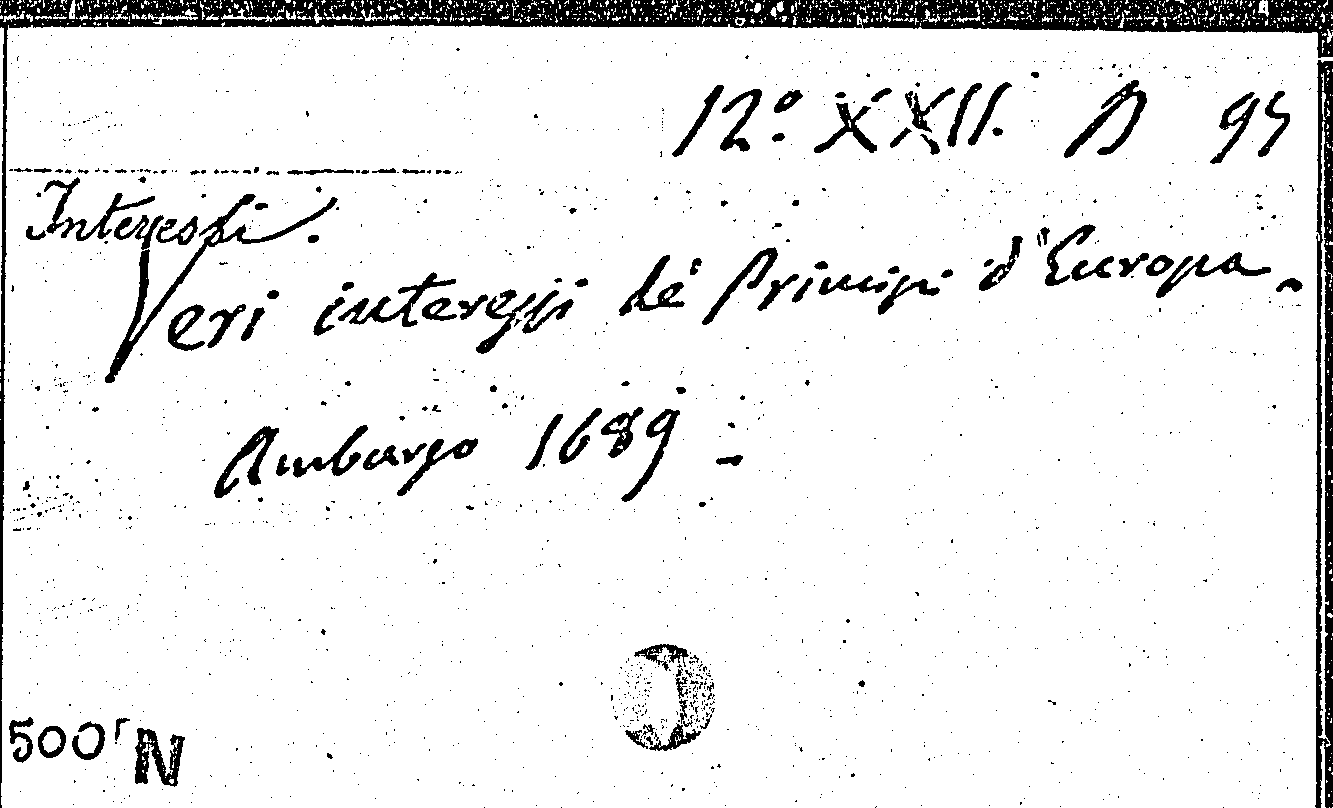 12.º XXII. D 95
Interessi.
Veri interessi de' Principi d'Europa.
Amburgo 1689 -
500 N